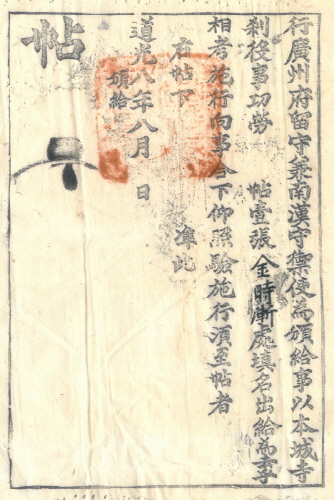 行廣州府留守兼南漢守禦使為頒給事以本城寺
刹役事功勞 帖壹張 金時漸處填名出給為
相考施行向事合下仰照驗施行須至帖者
右帖下 準此
道光八年八月 日
頒給
帖